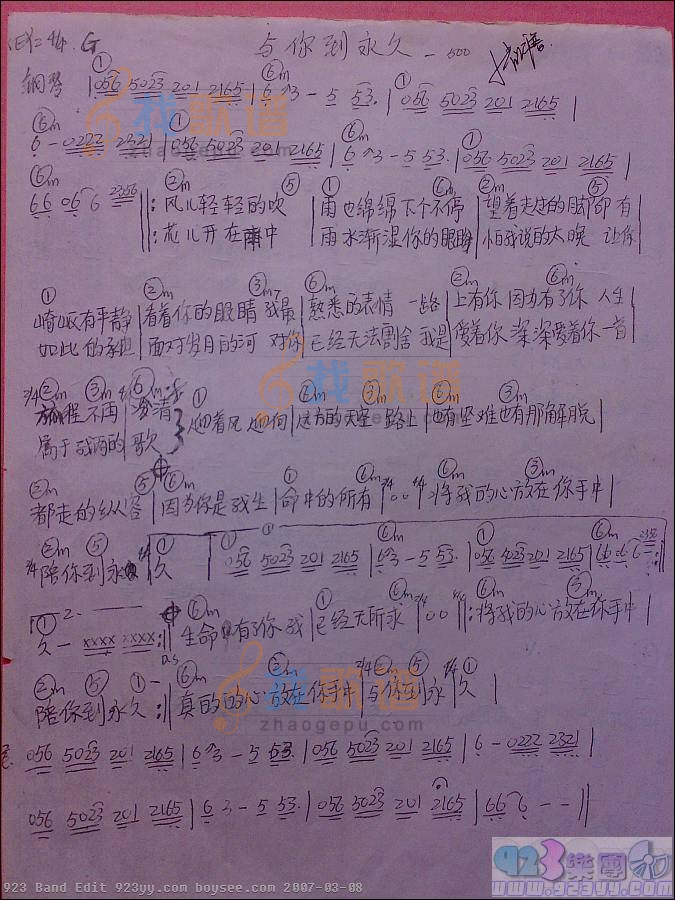 4/4 G 与你到永久 - 500
钢琴 | 056 5023 201 2165 | 6 3 - 5 53. | 056 5023 201 2165 |
6 - 0222 2321 | 056 5023 201 2165 | 6 3 - 5 53. | 056 5023 201 2165 |
66 06 6 2356
②m ⑤ ① ⑥m ②m ⑤
‖: 风儿轻轻的吹 | 雨也绵绵下个不停 | 望着走过的脚印 有
‖: 花儿开在雨中 | 雨水渐湿你的眼睛 | 怕我说的太晚 让你
① ②m ③m7 ⑥m ②m ⑥m
崎岖有平静 | 看着你的眼睛 我最 | 熟悉的表情 一路 | 上有你 因为有了你 人生
如此的承担 | 面对岁月的河 对你 | 已经无法割舍 我是 | 爱着你 深深爱着你 一首
3/4 ②m ③m 4/4 ⑥m
旅程不再 | 澄清
迎着风迎向 | 远方的天空 路上 | 也有坚难也有那解脱 |
属于我两的 | 歌
②m ⑤ ⑥m ① ⑥m 3/4 4/4 ⑥m ③m
都走的纵容 | 因为你是我生 | 命中的所有 | 00 | 将我的心放在你手中 |
②m ⑤ ① ① ⑥m ① ⑥m
3/4 陪你到永 4/4 | 久 | 056 5023 201 2165 | 6 3 - 5 53. | 056 5023 201 2165 | 66 06 6 2356 :‖
① 2. ⑥m ① ⑥m ⑥m ③m
久 - xxxx xxxx :‖ D.S | 生命中有了你 我 | 已经无所求 | 00 ‖: 将我的心放在你手中 |
②m ⑤ ① - ⑥m ②m 3/4 ②m ⑤ 4/4 ①
陪你到永久 :‖ 真的的心放在你手中 | 与你到永 | 久 |
056 5023 201 2165 | 6 3 - 5 53. | 056 5023 201 2165 | 6 - 0222 2321 |
056 5023 201 2165 | 6 3 - 5 53. | 056 5023 201 2165 | 66 6 - - ‖
找歌谱
zhaogepu.com
找歌谱
找歌谱
zhaogepu.com
923樂團
www.923yy.com
923 Band Edit 923yy.com boysee.com 2007-03-08